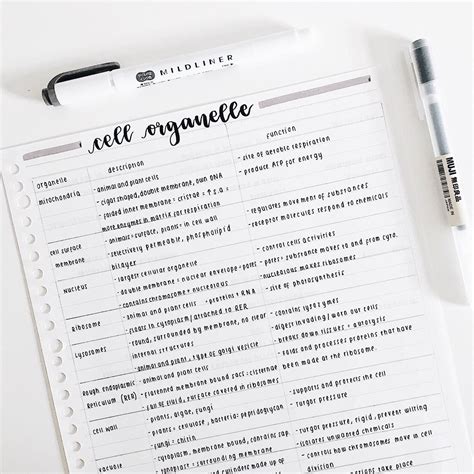 MILDLINER
cell organelle
organelle description function
mitochondria - animal and plant cells - site of aerobic respiration
- cigar shaped, double membrane, own DNA - produce ATP for energy
- folded inner membrane = cristae = ↑S.A =
more enzymes in matrix for respiration
cell surface - animals = surface, plants = in cell wall - regulates movement of substances
membrane - selectively permeable, phospholipid - receptor molecules respond to chemicals
bilayer
nucleus - largest cellular organelle - control cell activities
- double membrane = nuclear envelope = pores - substances move to and from cyto.
- contains chromosomes + nucleolus - nucleolus makes ribosomes
Ribosome - animal and plant cells - proteins + RNA - site of
- found in cytoplasm/attached to RER
Lysosomes - round, surrounded by membrane, no clear - contains lysozymes
internal structures - digest invading/worn out cells
- animal and plant, type of golgi vesicle - breaks down tissues = autolysis
Rough endoplasmic - animal and plant cells - folds and processes proteins that have
Reticulum (RER) - flattened membrane bound sacs = cisternae been made at the ribosome.
- surface covered in ribosomes
cell wall - plants, algae, fungi - supports and protects the cell
- plants = cellulose, bacteria = peptidoglycan - turgor pressure
- fungi = chitin
vacuole - cytoplasm, membrane bound, contains sap - turgor pressure, rigid, prevent wilting
- isolates unwanted chemicals
- controls how chromosomes move in cell
division
MUJI 無印良品